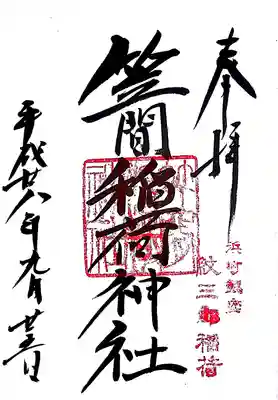 奉拝
紋三郎稲荷
笠間稲荷神社
平成廿八年九月廿五日